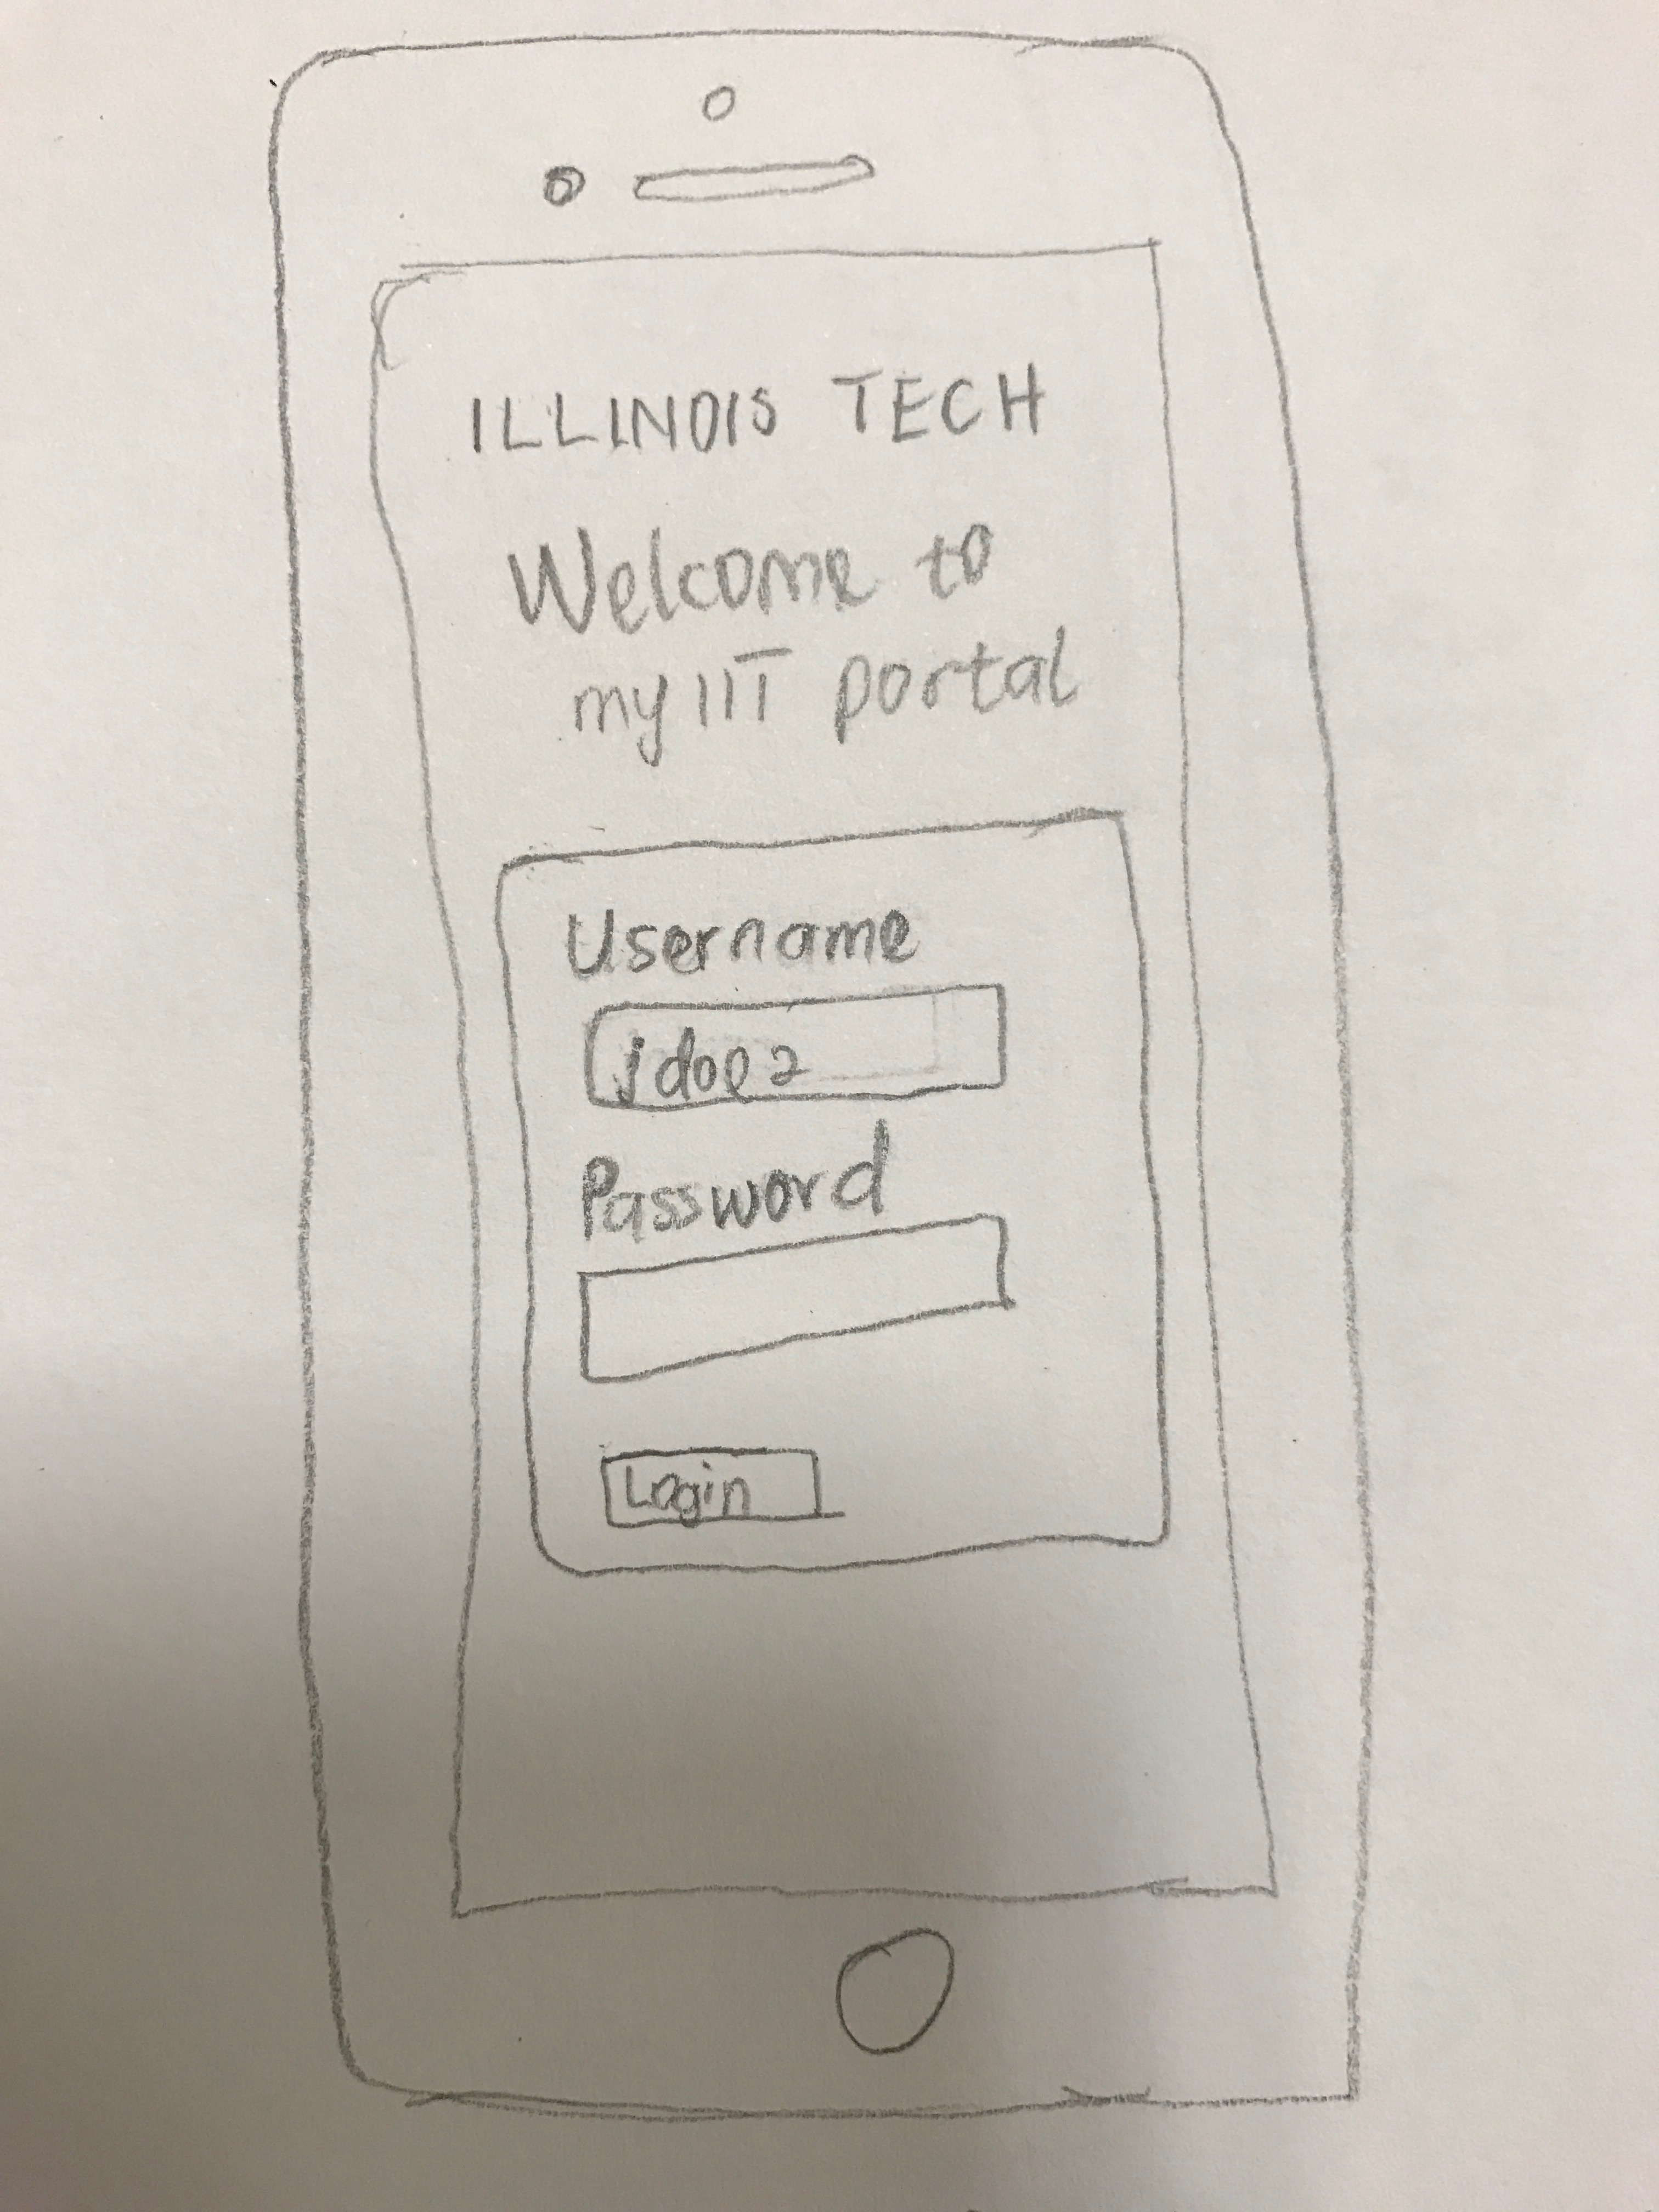 ILLINOIS TECH
Welcome to
my IIT portal
Username
jdoe2
Password
Login